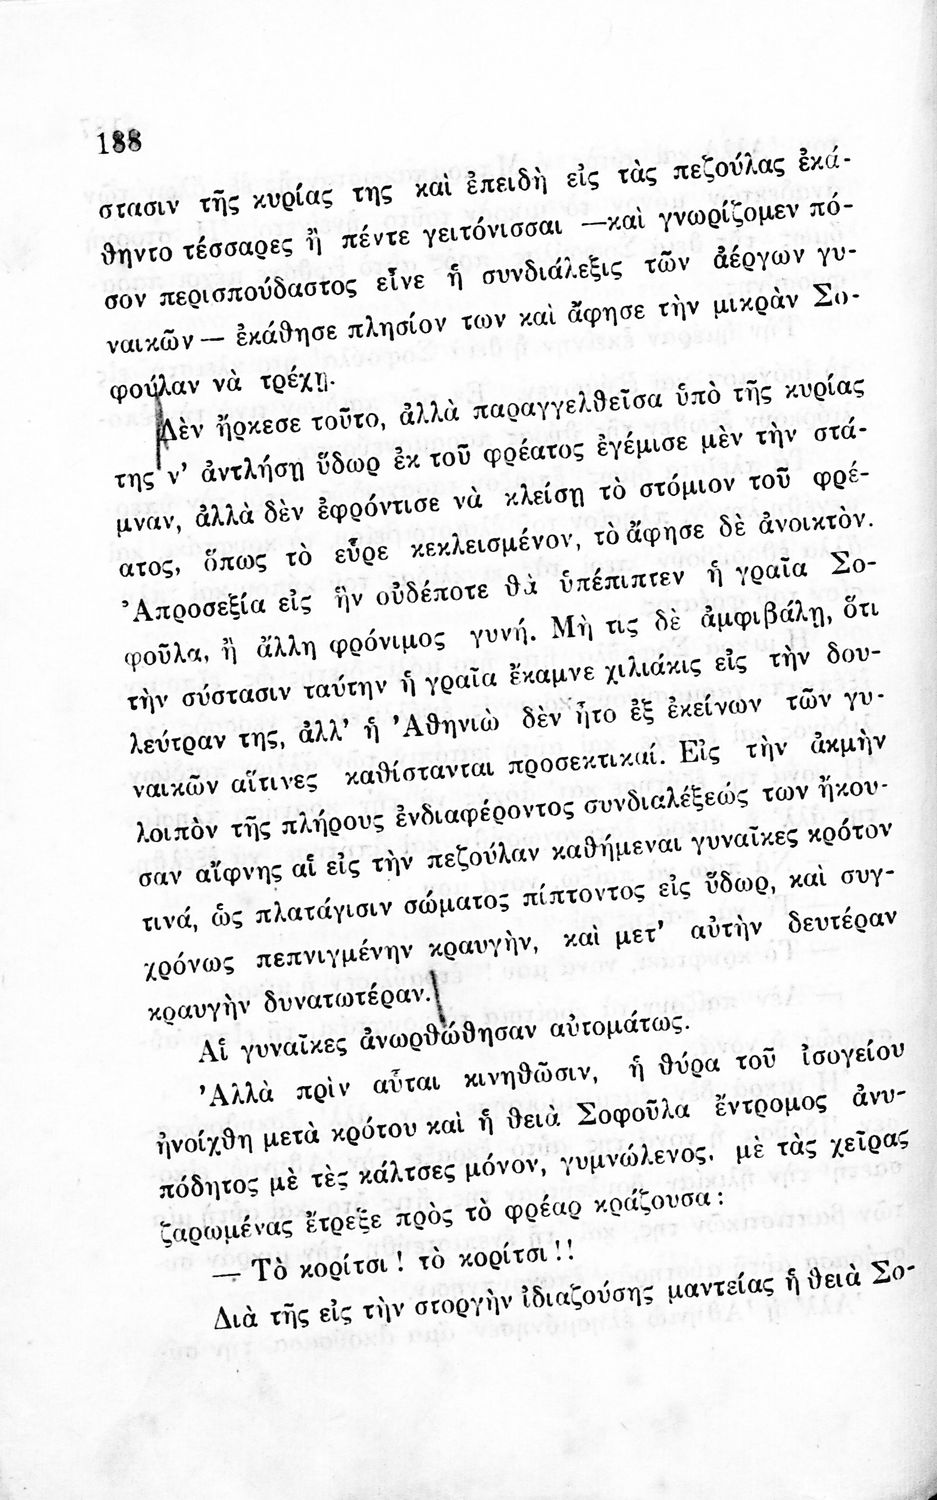 188
στασιν τῆς κυρίας της καὶ ἐπειδὴ εἰς τὰς πεζούλας ἐκά-
θηντο τέσσαρες ἢ πέντε γειτόνισσαι —καὶ γνωρίζομεν πό-
σον περισπούδαστος εἶνε ἡ συνδιάλεξις τῶν ἀέργων γυ-
ναικῶν — ἐκάθησε πλησίον των καὶ ἄφησε τὴν μικρὰν Σο-
φούλαν νὰ τρέχῃ.
Δὲν ἤρκεσε τοῦτο, ἀλλὰ παραγγελθεῖσα ὑπὸ τῆς κυρίας
της ν' ἀντλήσῃ ὕδωρ ἐκ τοῦ φρέατος ἐγέμισε μὲν τὴν στά-
μναν, ἀλλὰ δὲν ἐφρόντισε νὰ κλείσῃ τὸ στόμιον τοῦ φρέ-
ατος, ὅπως τὸ εὗρε κεκλεισμένον, τὸ ἄφησε δὲ ἀνοικτὸν.
Ἀπροσεξία εἰς ἣν οὐδέποτε θὰ ὑπέπιπτεν ἡ γραῖα Σο-
φοῦλα, ἢ ἄλλη φρόνιμος γυνή. Μὴ τις δὲ ἀμφιβάλῃ, ὅτι
τὴν σύστασιν ταύτην ἡ γραῖα ἔκαμνε χιλιάκις εἰς τὴν δου-
λεύτραν της, ἀλλ' ἡ Ἀθηνιὼ δὲν ἦτο ἐξ ἐκείνων τῶν γυ-
ναικῶν αἵτινες καθίστανται προσεκτικαί. Εἰς τὴν ἀκμὴν
λοιπὸν τῆς πλήρους ἐνδιαφέροντος συνδιαλέξεώς των ἤκου-
σαν αἴφνης αἱ εἰς τὴν πεζούλαν καθήμεναι γυναῖκες κρότον
τινά, ὡς πλατάγισιν σώματος πίπτοντος εἰς ὕδωρ, καὶ συγ-
χρόνως πεπνιγμένην κραυγὴν, καὶ μετ' αὐτὴν δευτέραν
κραυγὴν δυνατωτέραν.
Αἱ γυναῖκες ἀνωρθώθησαν αὐτομάτως.
Ἀλλὰ πρὶν αὗται κινηθῶσιν, ἡ θύρα τοῦ ἰσογείου
ἠνοίχθη μετὰ κρότου καὶ ἡ θειὰ Σοφοῦλα ἔντρομος ἀνυ-
πόδητος μὲ τὲς κάλτσες μόνον, γυμνώλενος, μὲ τὰς χεῖρας
ζαρωμένας ἔτρεξε πρὸς τὸ φρέαρ κράζουσα:
— Τὸ κορίτσι! τὸ κορίτσι!!
Διὰ τῆς εἰς τὴν στοργὴν ἰδιαζούσης μαντείας ἡ θειὰ Σο-